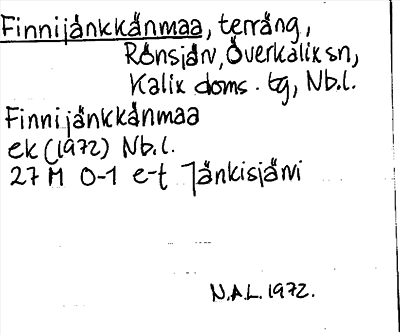 Finnijänkkänmaa, terräng,
Rönsjärv, Överkalix sn,
Kalix doms. tg, Nb.l.
Finnijänkkänmaa
ek (1972) Nb.l.
27 M 0-1 e-t Jänkisjärvi
N.A.L. 1972.